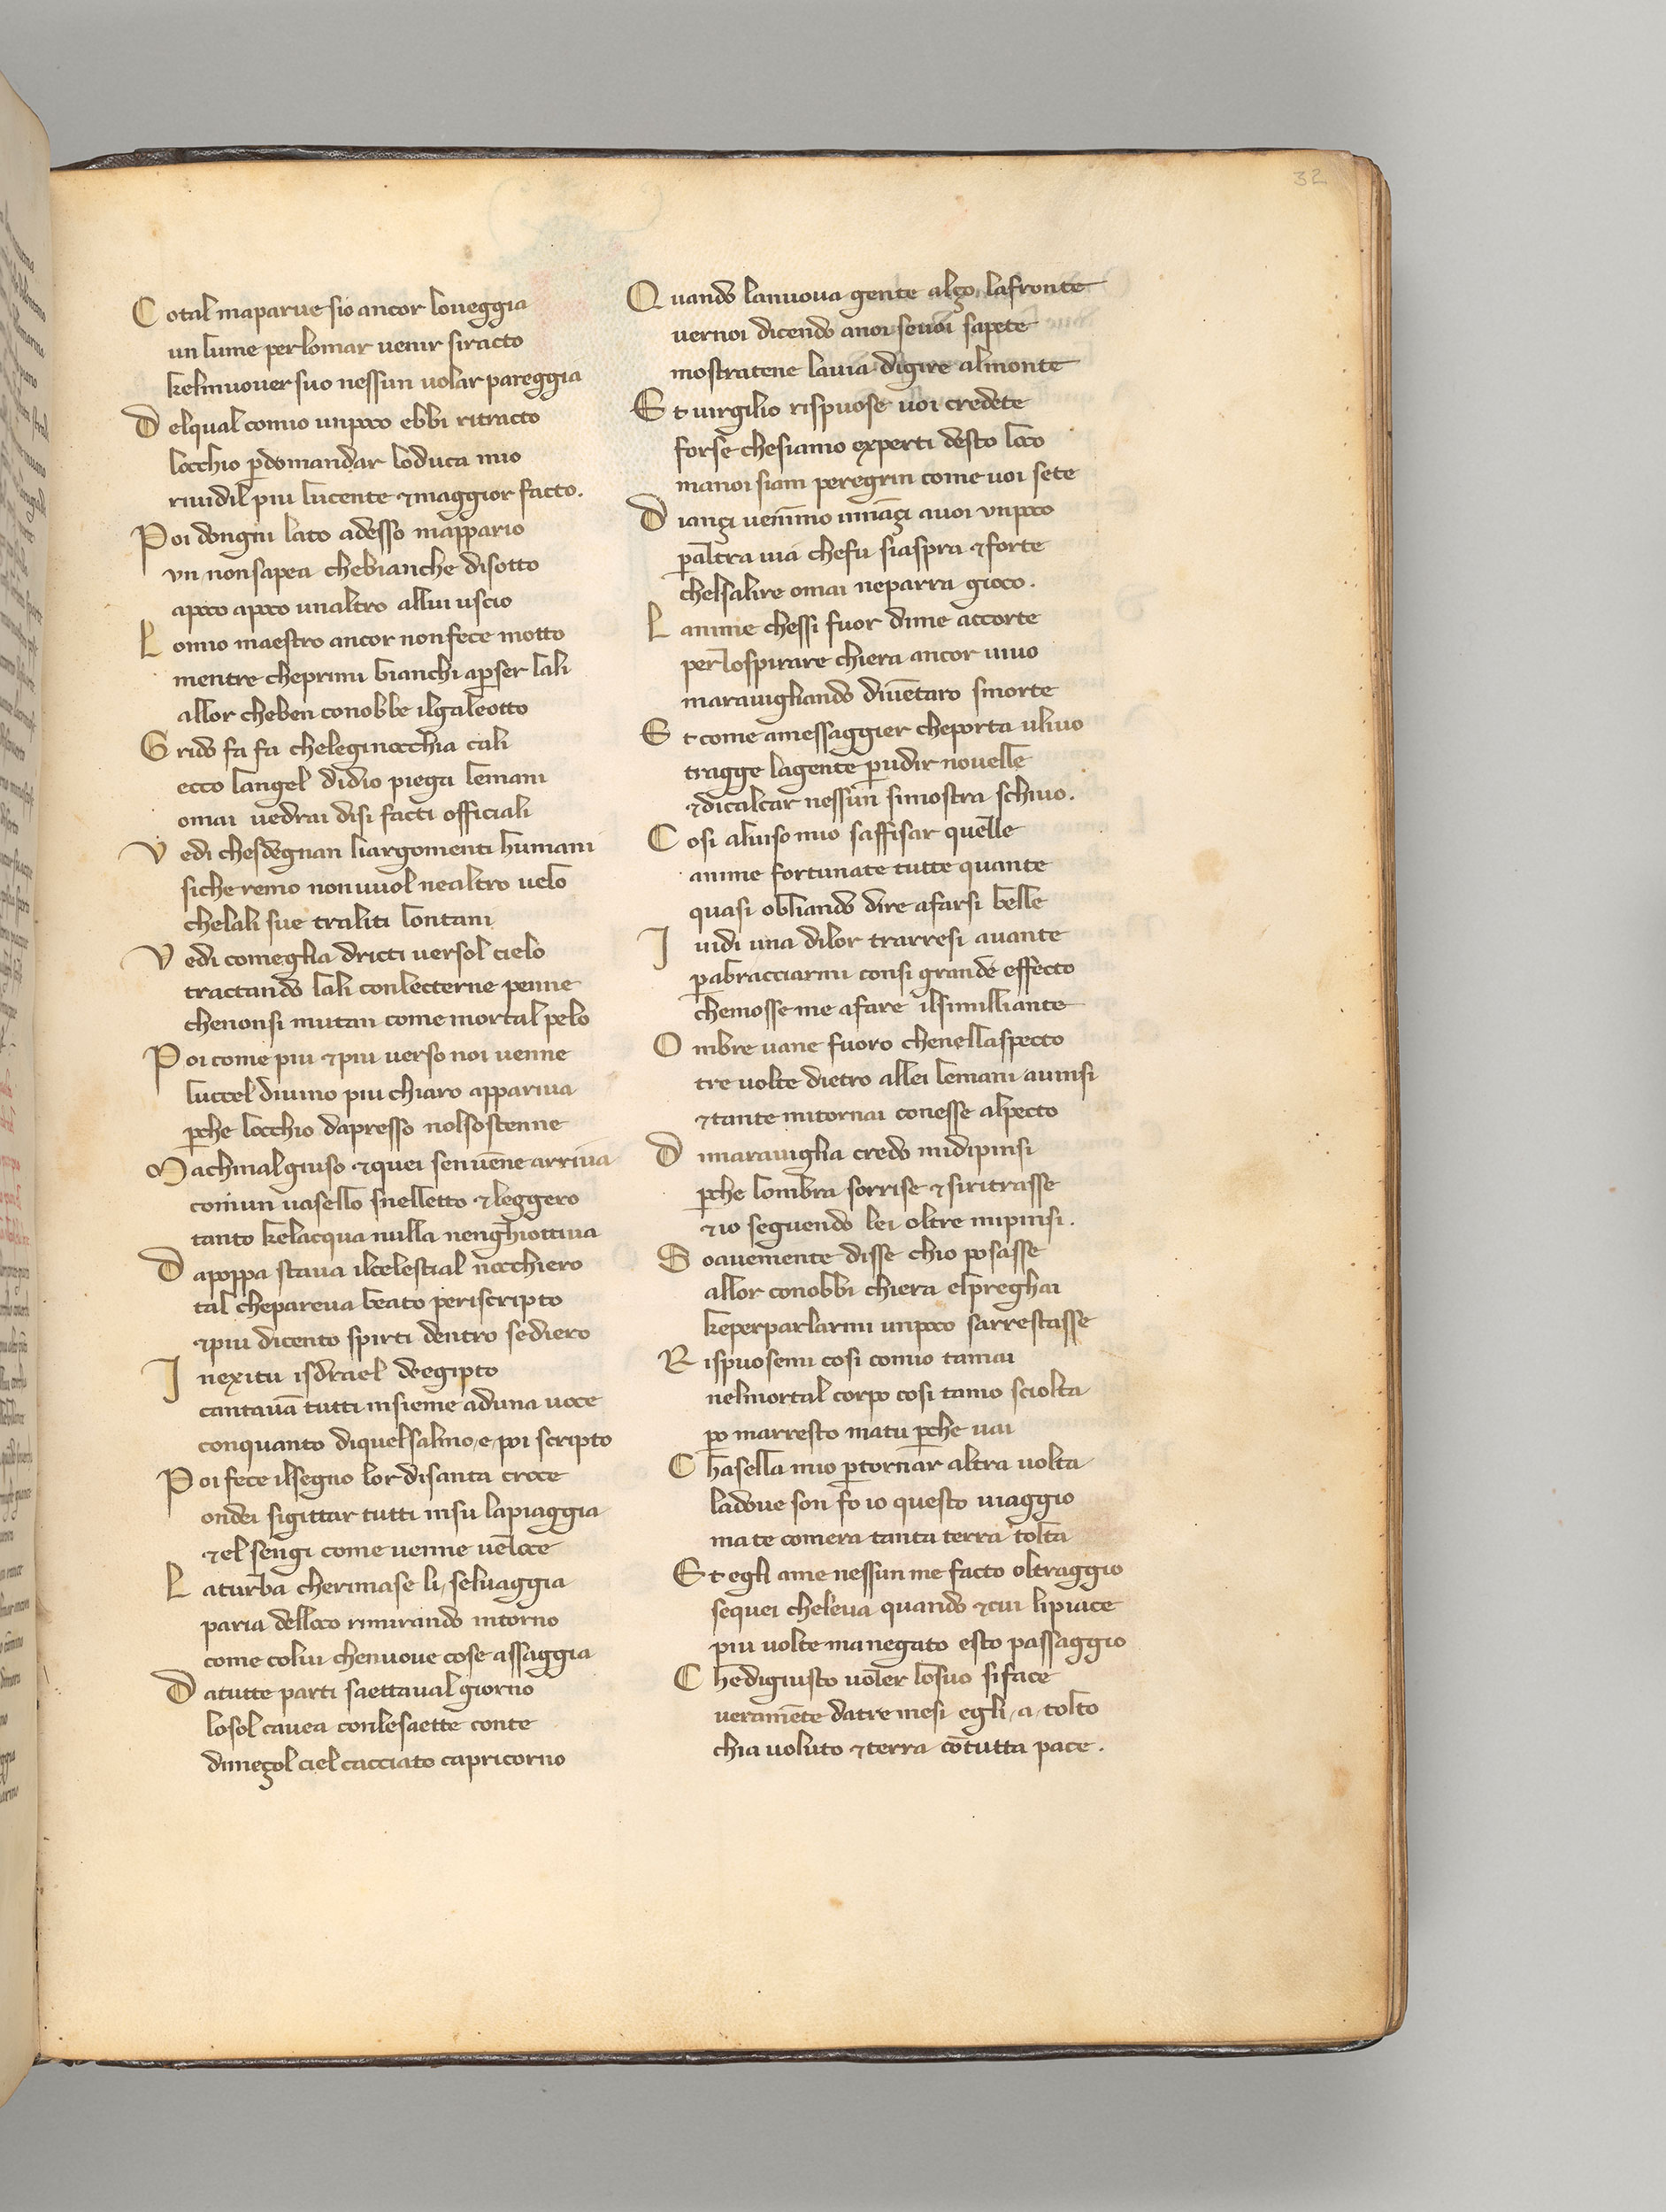 32
Cotal maparue sio ancor loueggia
un lume perlomar uenir siracto
kelmuouer suo nessun uolar pareggia
Delqual comio unpoco ebbi ritracto
locchio pdomandar loduca mio
riuidil piu lucente ⁊maggior facto.
Poi dongni lato adesso mappario
vn nonsapea chebianche disotto
apoco apoco unaltro allui uscio
Lomio maestro ancor nonfece motto
mentre cheprimi bianchi apser lali
allor cheben conobbe ilgaleotto
Grido fa fa cheleginocchia cali
ecco langel didio piega lemani
omai uedrai disi facti officiali
Vedi chesdegnan liargomenti humani
siche remo nonuuol nealtro uelo
chelali sue traliti lontani
Vedi comeglia dricti uersol cielo
tractando lali conlecterne penne
chenonsi mutan come mortal pelo
Poi come piu ⁊piu uerso noi uenne
luccel diuino piu chiaro appariua
pche locchio dapresso nolsostenne
Machinalgiuso ⁊quei senuēne arriua
comun uasello snelletto ⁊leggero
tanto kelacqua nulla nenghiottiua
Dapoppa staua ilcelestial nocchiero
tal chepareua beato periscripto
⁊piu dicento spirti dentro sediero
Inexitu isdrael deegipto
cantauā tutti insieme aduna uoce
conquanto diquelsalmo/e/poi scripto
Poi fece ilsegno lor disanta croce
ondei sigittar tutti insu lapiaggia
⁊el sengi come uenne ueloce
Laturba cherimase li/seluaggia
paria delloco rimirando intorno
come colui chenuoue cose assaggia
Datutte parti saettaual giorno
losol cauea conlesaette conte
dimeçol ciel cacciato capricorno
Quando lanuoua gente alço lafronte
uernoi dicendo anoi seuoi sapete
mostratene lauia digire almonte
Et uirgilio rispuose uoi credete
forse chesiamo experti desto loco
manoi siam peregrin come uoi sete
Diançi uenimo innāçi auoi vnpoco
paltra uia chefu siaspra ⁊forte
chelsalire omai neparra gioco.
Lanime chessi fuor dime accorte
perlospirare chiera ancor uiuo
marauigliando diuētaro smorte
Et come amessaggier cheporta uliuo
tragge lagente pudir nouelle
⁊dicalcar nessun simostra schiuo.
Cosi aluiso mio saffisar quelle
anime fortunate tutte quante
quasi obliando dire afarsi belle
I uidi una dilor trarresi auante
pabracciarmi consi grande effecto
chemosse me afare ilsimilliante
Ombre uane fuoro chenellaspecto
tre uolte dietro allei lemani auinsi
⁊tante mitornai conesse alpecto
Dimarauiglia credo midipinsi
pche lombra sorrise ⁊siritrasse
⁊io seguendo lei oltre mipinsi.
Soauemente disse chio posasse
allor conobbi chiera elpreghai
keperparlarmi unpoco sarrestasse
Rispuosemi cosi comio tamai
nelmortal corpo cosi tamo sciolta
po marresto matu pche uai
Chasella mio ptornar altra uolta
ladoue son fo io questo uiaggio
ma te comera tanta terra tolta
Et egli ame nessun me facto oltraggio
sequei cheleua quando ⁊cui lipiace
piu uolte manegato esto passaggio
Chedigiusto uoler losuo siface
ueramēte datre mesi egli/a/tolto
chia uoluto ⁊terra cōtutta pace.